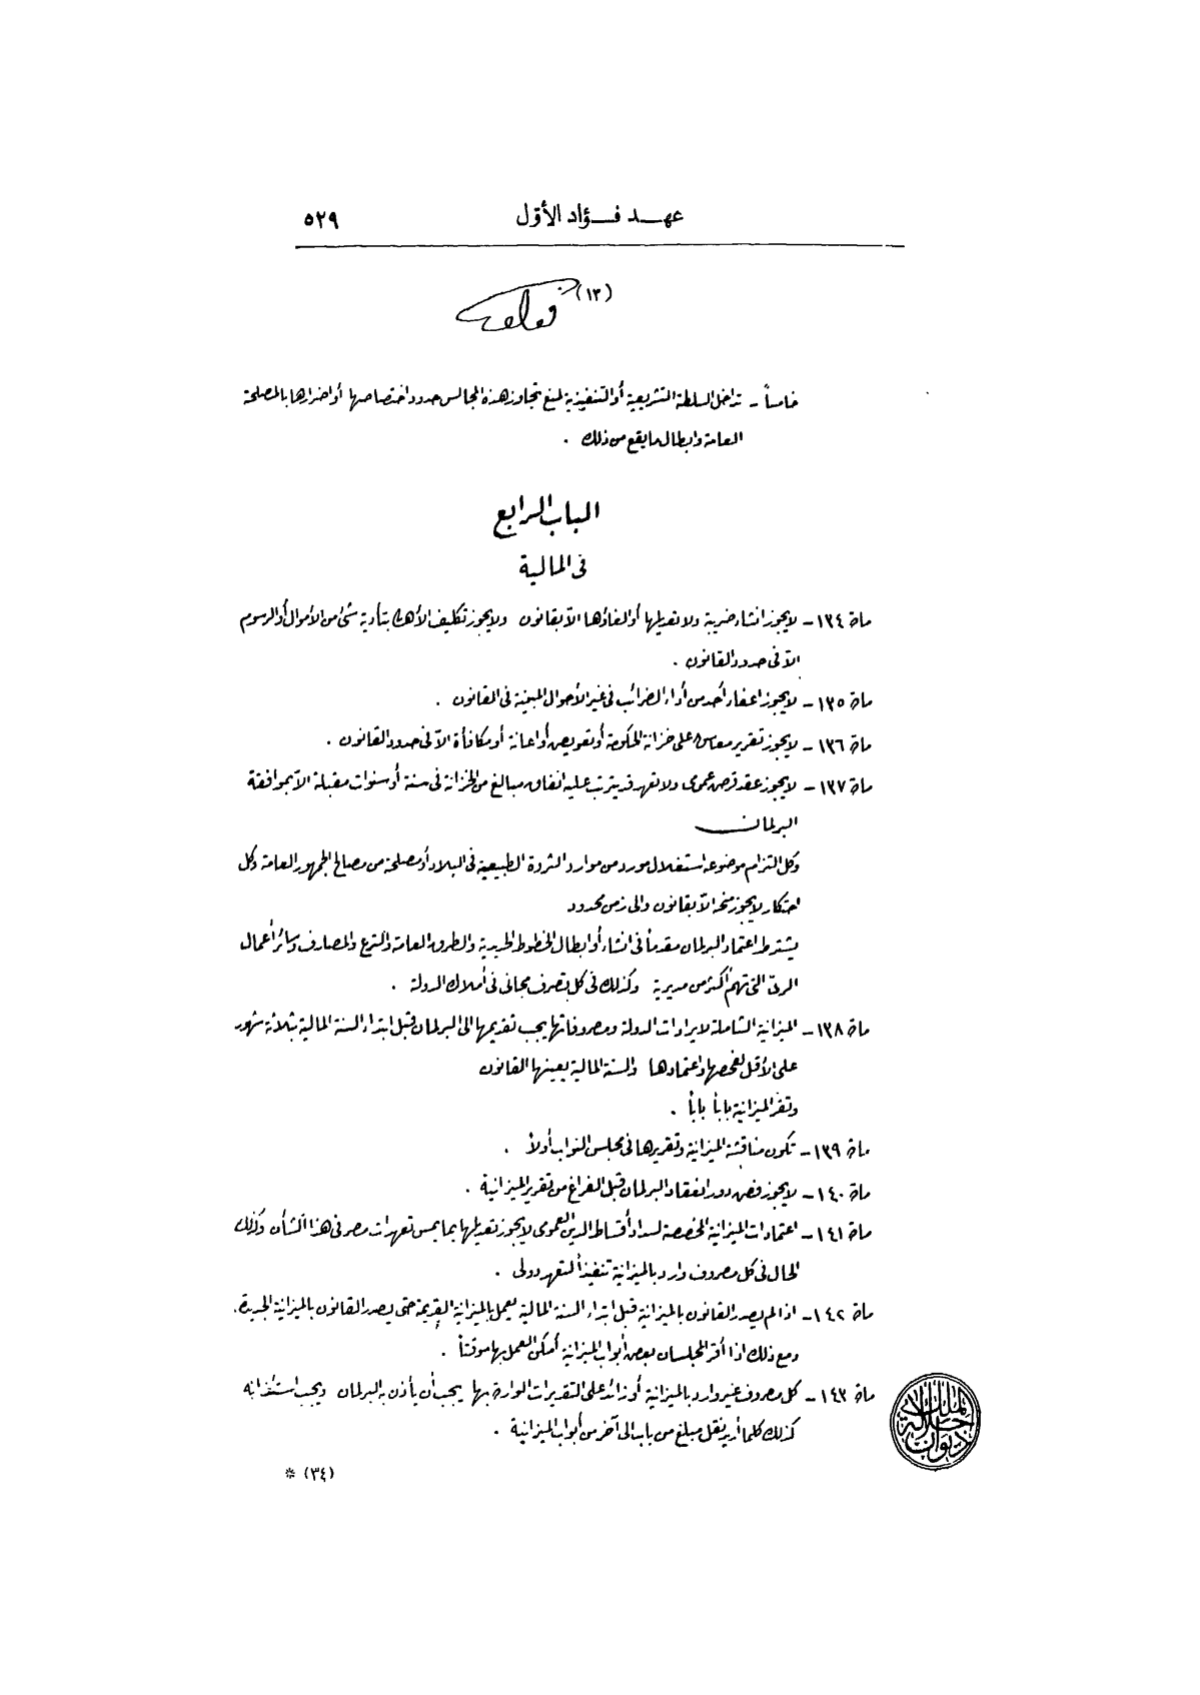 عهد فؤاد الأول ٥٢٩
(١٣)
خامساً - تداخل السلطة التشريعية أو التنفيذية لمنع تجاوز هذه المجالس حدود اختصاصها أو اضرارها بالمصلحة
العامة وابطال ما يقع من ذلك .
الباب الرابع
فى المالية
مادة ١٣٤ - لا يجوز انشاء ضريبة ولا تعديلها أو الغاؤها الاّ بقانون ولا يجوز تكليف الأهالى بتأدية شئ من الأموال أو الرسوم
الاّ فى حدود القانون .
مادة ١٣٥ - لا يجوز اعفاء أحد من أداء الضرائب فى غير الأحوال المبينة فى القانون .
مادة ١٣٦ - لا يجوز تقرير معاش على خزانة الحكومة أو تعويض أو اعانة أو مكافأة الاّ فى حدود القانون .
مادة ١٣٧ - لا يجوز عقد قرض عمومى ولا تعهد قد يترتب عليه انفاق مبالغ من الخزانة فى سنة أو سنوات مقبلة الاّ بموافقة
البرلمان
وكل التزام موضوعه استغلال مورد من موارد الثروة الطبيعية فى البلاد أو مصلحة من مصالح الجمهور العامة وكل
احتكار لا يجوز منحه الاّ بقانون والى زمن محدود
يشترط اعتماد البرلمان مقدماً فى انشاء أو ابطال الخطوط الحديدية والطرق العامة والترع والمصارف وسائر أعمال
الرىّ التى تهم أكثر من مديرية وكذلك فى كل تصرف مجانى فى أملاك الدولة .
مادة ١٣٨ - الميزانية الشاملة لايرادات الدولة ومصروفاتها يجب تقديمها الى البرلمان قبل ابتداء السنة المالية بثلاثة شهور
على الأقل لفحصها واعتمادها والسنة المالية يعينها القانون
وتقر الميزانية باباً باباً .
مادة ١٣٩ - تكون مناقشة الميزانية وتقريرها فى مجلس النواب أولاً .
مادة ١٤٠ - لا يجوز فض دور انعقاد البرلمان قبل الفراغ من تقرير الميزانية .
مادة ١٤١ - اعتمادات الميزانية المخصصة لسداد أقساط الدين العمومى لا يجوز تعديلها بما يمس تعهدات مصر فى هذا الشأن وكذلك
الحال فى كل مصروف وارد بالميزانية تنفيذاً لتعهد دولى .
مادة ١٤٢ - اذا لم يصدر القانون بالميزانية قبل ابتداء السنة المالية يعمل بالميزانية القديمة حتى يصدر القانون بالميزانية الجديدة .
ومع ذلك اذا أقر المجلسان بعض أبواب الميزانية أمكن العمل بها موقتاً .
مادة ١٤٣ - كل مصروف غير وارد بالميزانية أو زائد على التقديرات الواردة بها يجب أن يأذن به البرلمان ويجب استئذانه
كذلك كلما أريد نقل مبلغ من باب الى آخر من أبواب الميزانية .
ديوان جلالة الملك
(٣٤) *